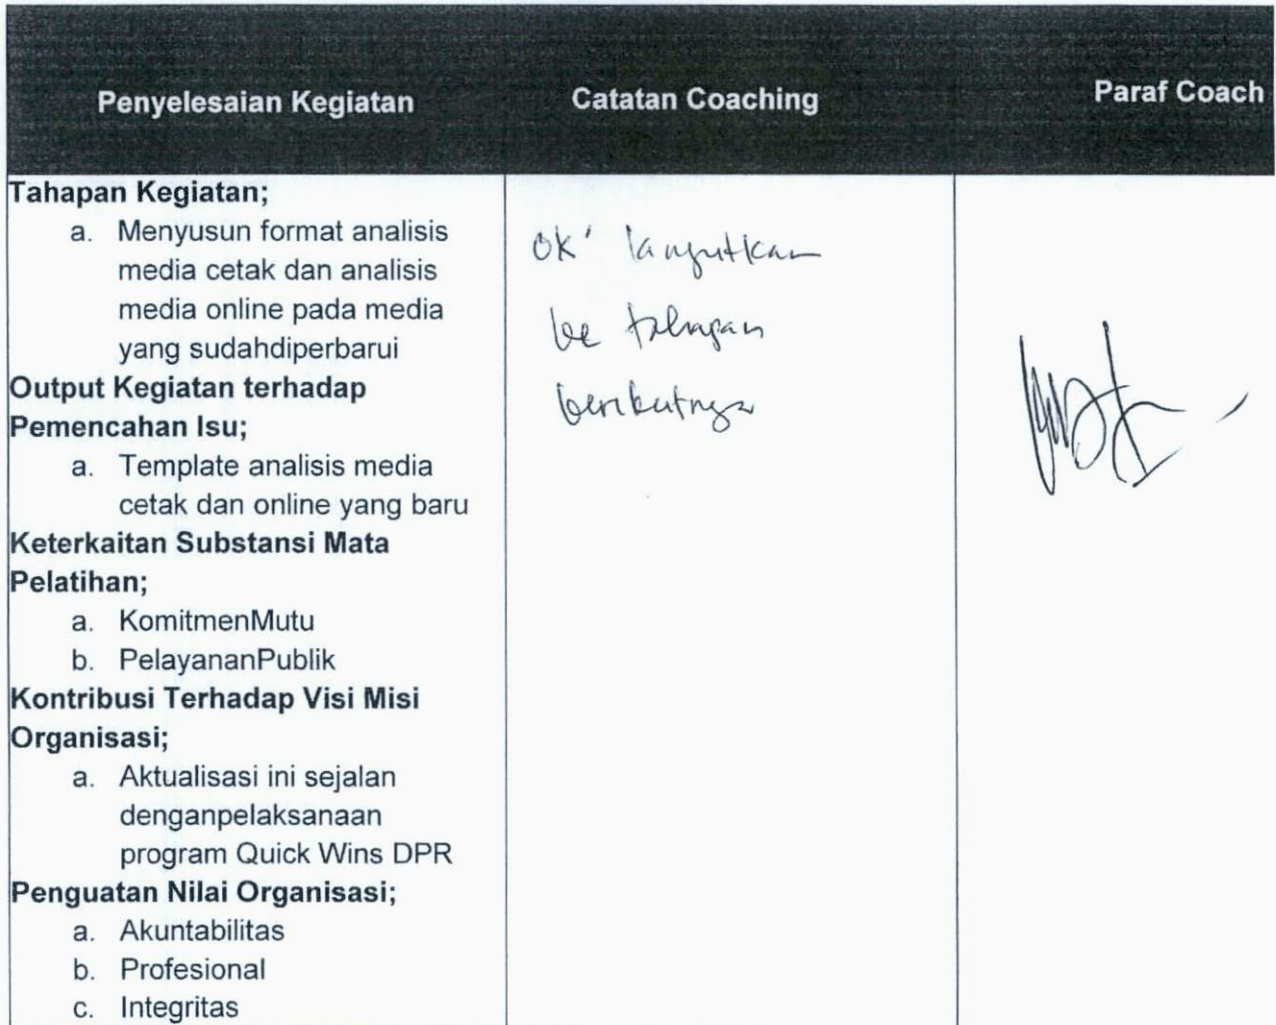 Penyelesaian Kegiatan
Catatan Coaching
Paraf Coach
Tahapan Kegiatan;
a. Menyusun format analisis
media cetak dan analisis
media online pada media
yang sudahdiperbarui
Output Kegiatan terhadap
Pemencahan Isu;
a. Template analisis media
cetak dan online yang baru
Keterkaitan Substansi Mata
Pelatihan;
a. KomitmenMutu
b. PelayananPublik
Kontribusi Terhadap Visi Misi
Organisasi;
a. Aktualisasi ini sejalan
denganpelaksanaan
program Quick Wins DPR
Penguatan Nilai Organisasi;
a. Akuntabilitas
b. Profesional
c. Integritas
ok' lanjutkan
ke tahapan
berikutnya